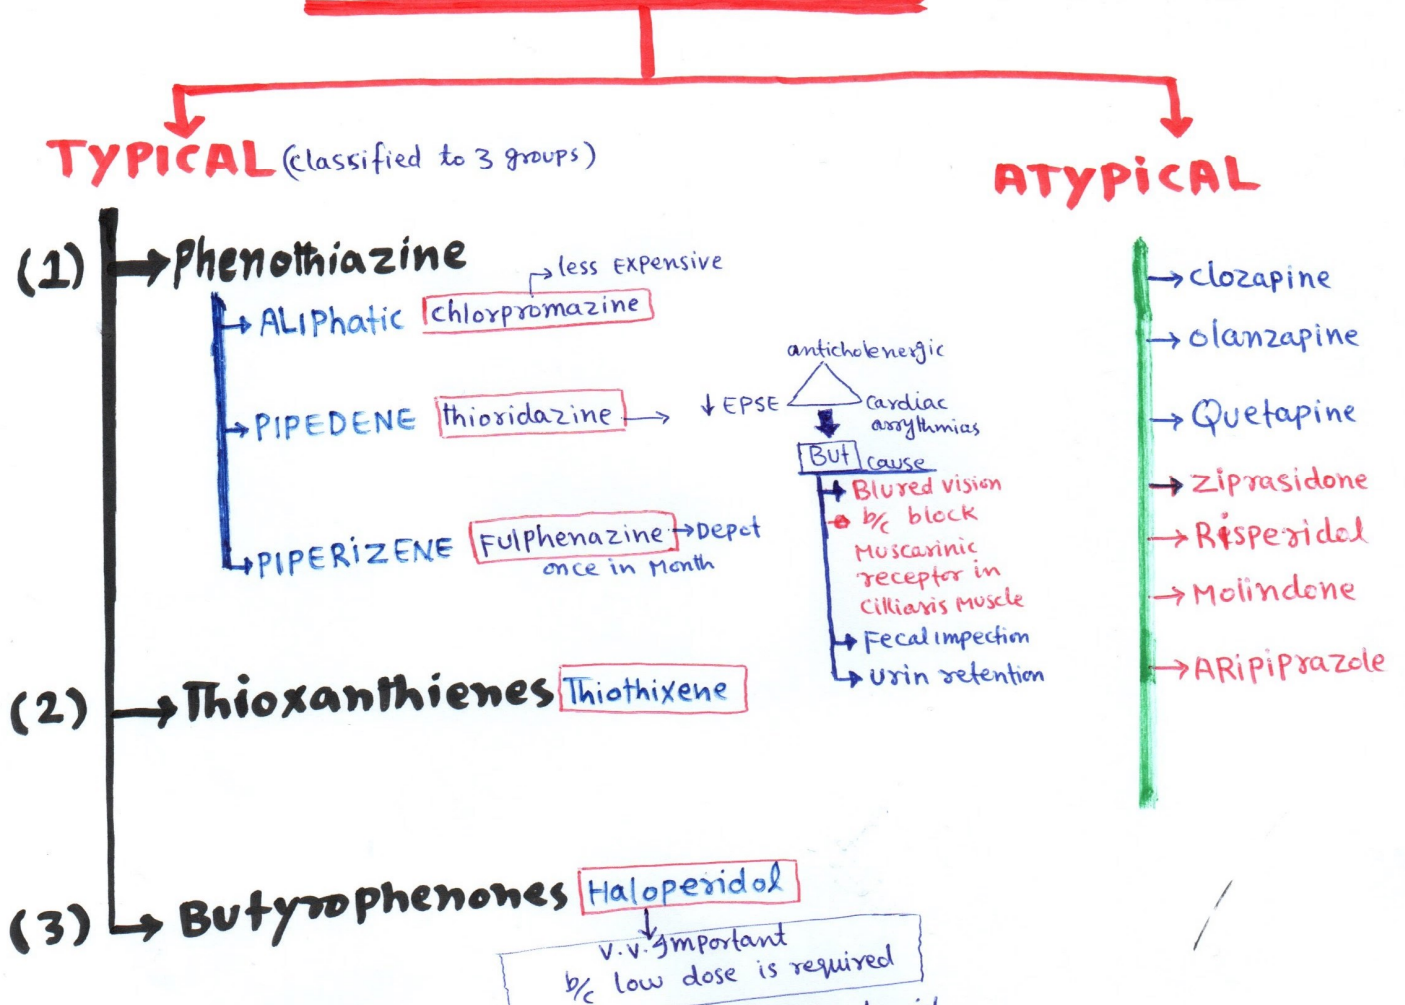 TYPICAL (classified to 3 groups)
ATYPiCAL
(1) Phenothiazine
less EXPENSIVE
ALiPhatic chlorpromazine
PIPEDENE thioridazine
↓ EPSE
anticholenergic
cardiac
arrythmias
But cause
Blured vision
b/c block
Muscarinic
receptor in
cilliaris Muscle
Fecal impection
urin retention
PIPERiZENE Fulphenazine → Depot
once in Month
(2) Thioxanthienes Thiothixene
(3) Butyrophenones Haloperidol
v.v. important
b/c low dose is required
clozapine
olanzapine
Quetapine
Ziprasidone
Risperidol
Molindone
ARipiprazole